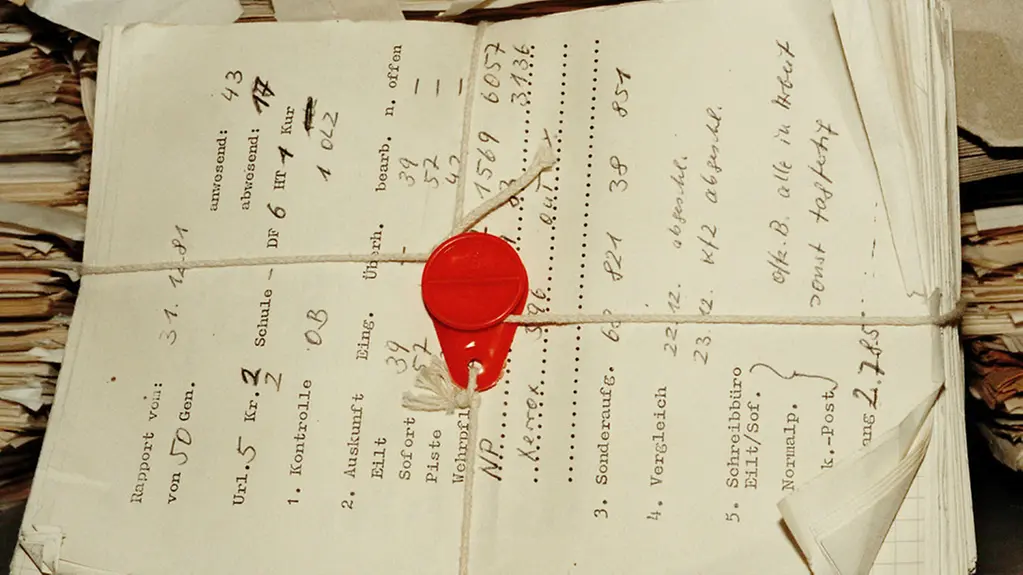 Rapport vom: 31. 12. 81 anwesend: 43
von 50 Gen. abwesend: 17
Url. 5 Kr. 2 Schule – DF 6 HT 1 Kur
2 1 OLZ
1. Kontrolle OB
2. Auskunft Eing. Überh. bearb. n. offen
Eilt
Sofort 39 – 39 –
Piste 57 57 –
Wehrpfl 42 –
NP. 1569 6057
Xerox 3136
3. Sonderaufg. 821 38 851
4. Vergleich 22.12. abgeschl.
23.12. Kfz abgeschl.
5. Schreibbüro
Eilt/Sof.
Normalp. Offk.B. alle in Arbeit
k.-Post sonst tagfertig
ang 2.785